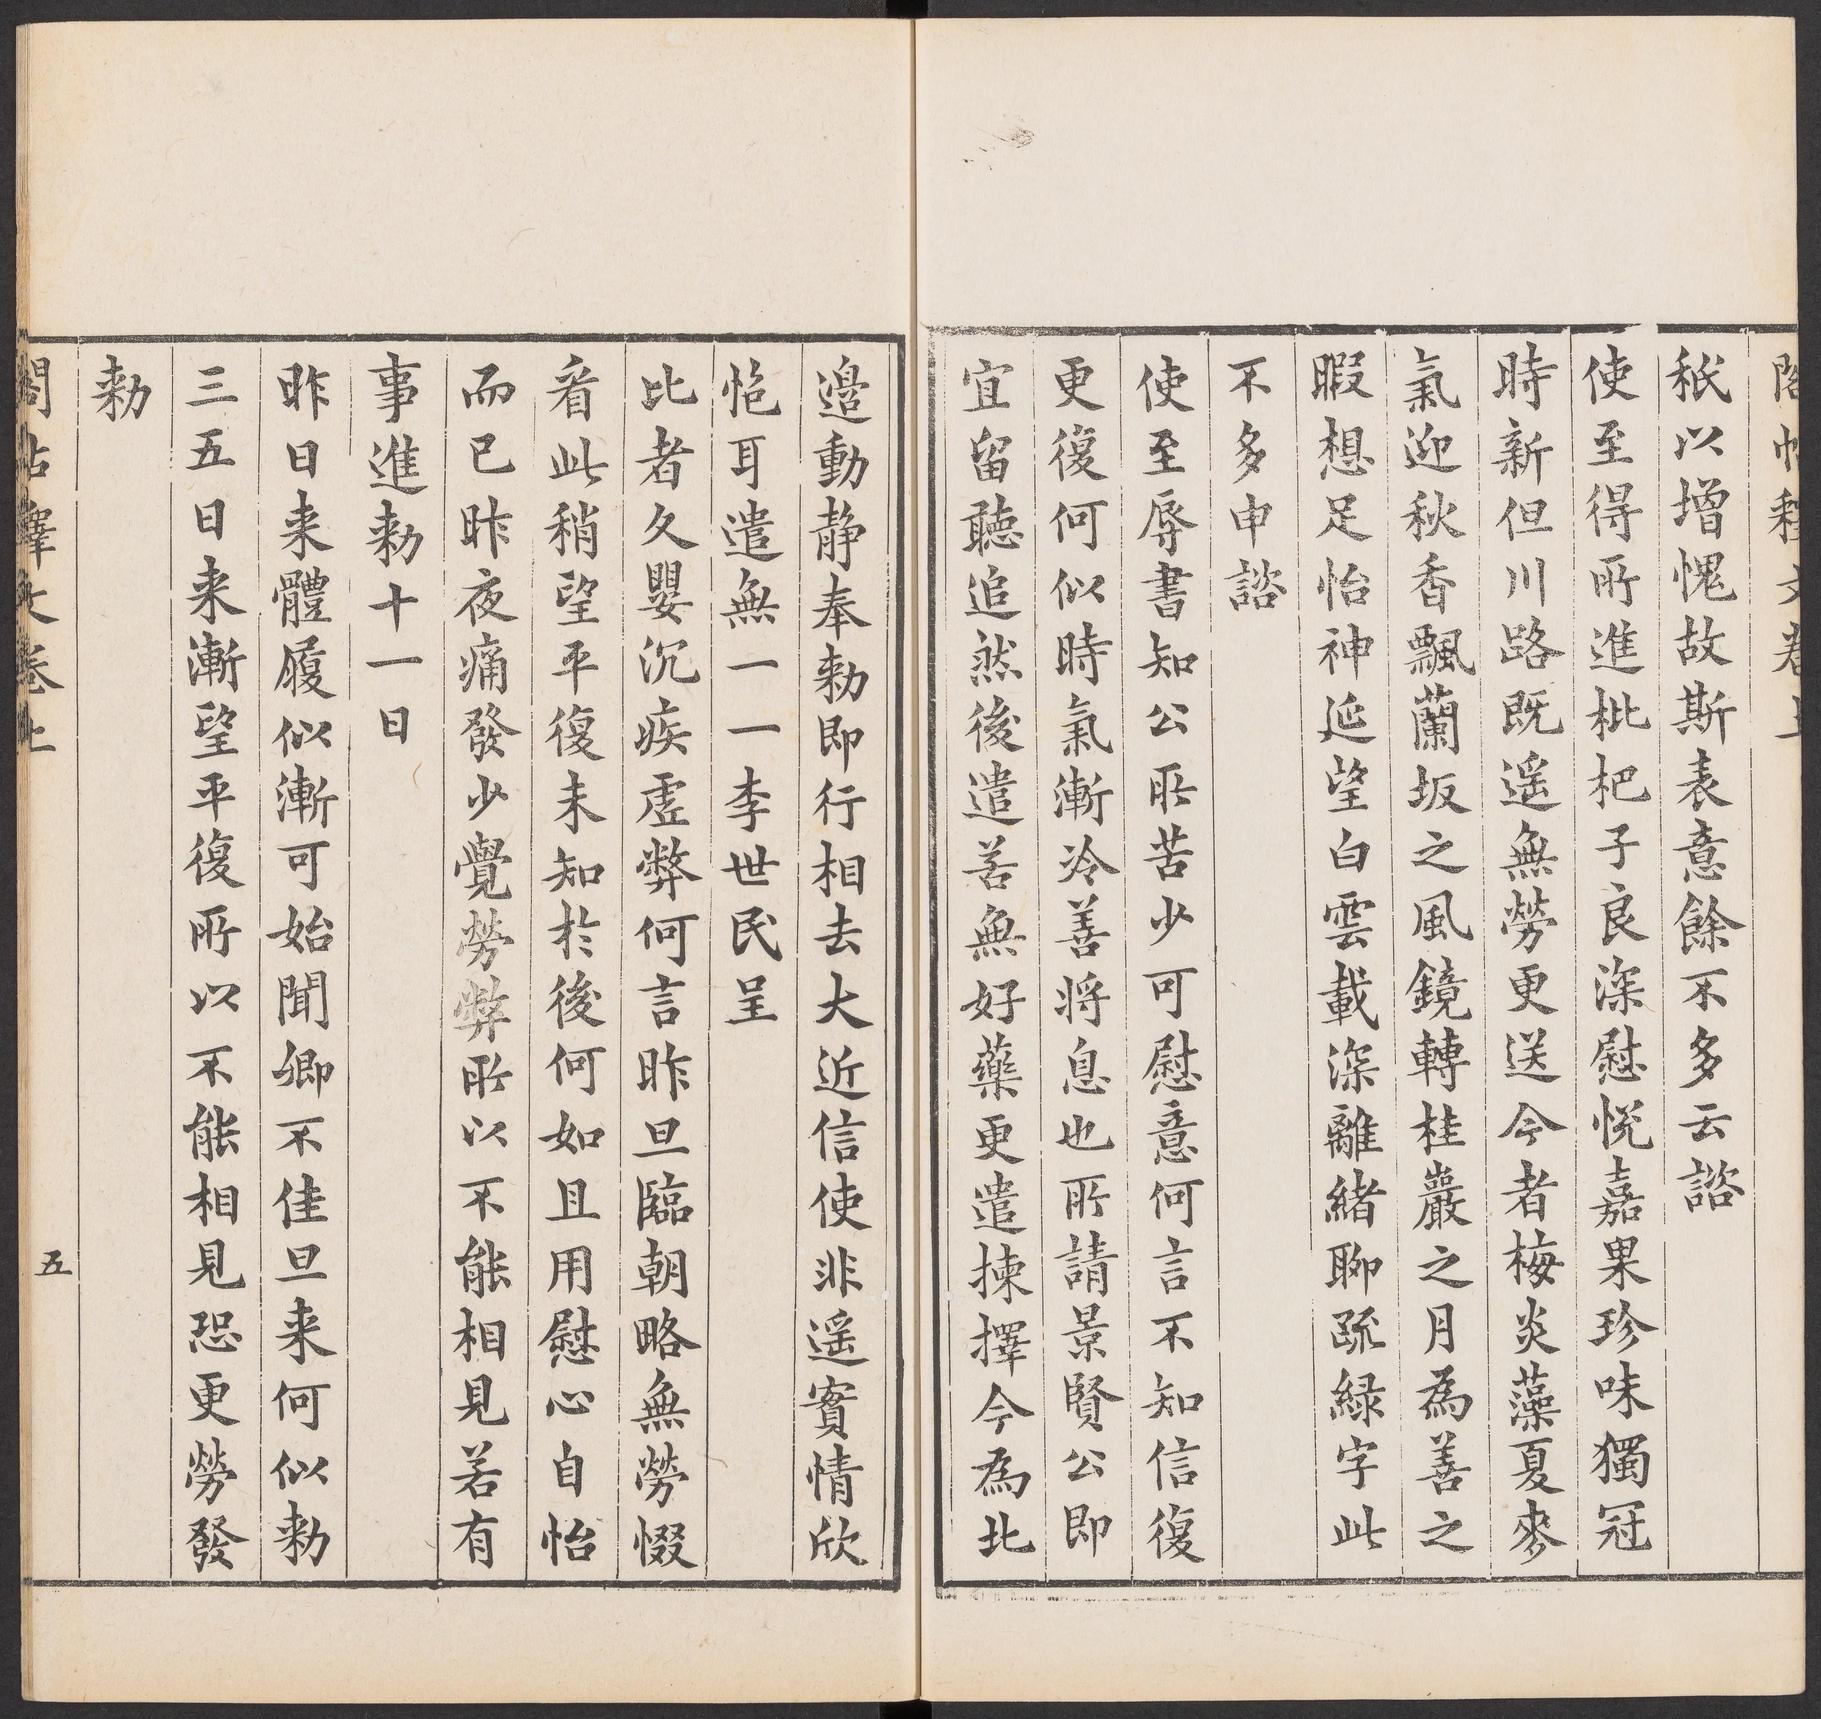 閣帖釋文卷上
秖以增愧故斯表意餘不多云諮
使至得所進枇杷子良深慰悅嘉果珍味獨冠
時新但川路既遥無勞更送今者梅炎藻夏麥
氣迎秋香飄蘭坂之風鏡轉桂巖之月為善之
暇想足怡神延望白雲載深離緒聊疏緑字此
不多申諮
使至辱書知公所苦少可慰意何言不知信復
更復何似時氣漸冷善將息也所請景賢公即
宜留聽追然後遣若無好藥更遣揀擇今為北
邉動静奉勑即行相去大近信使非遥實情欣
悒耳遣無一一李世民呈
比者久嬰沉疾虛弊何言昨旦臨朝略無勞惙
看此稍望平復未知於後何如且用慰心自怡
而已昨夜痛發少覺勞弊所以不能相見若有
事進勑十一日
昨日来體履似漸可始聞卿不佳旦来何似勑
三五日来漸望平復所以不能相見恐更勞發
勑
閣帖釋文卷上
五